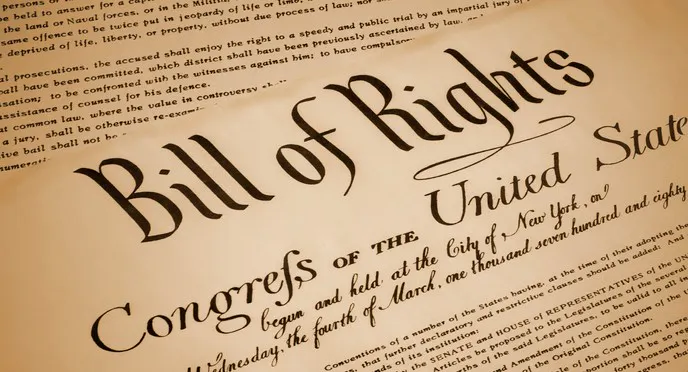 persons or
be held to answer for a cap
the land or Naval forces, or in the Militia
same offence to be twice put in jeopardy of life or limb,
deprived of life, liberty, or property, without due process of law; nor
al prosecutions, the accused shall enjoy the right to a speedy and public trial by an impartial jury of
all have been committed, which district shall have been previously ascertained by law, and
sation; to be confronted with the witnesses against him; to have compulsory
assistance of counsel for his defence.
at common law, where the value in controversy shall
a jury, shall be otherwise re-exami
ive bail shall not be
enumerati
Bill of Rights
Congreſs OF THE United State
begun and held at the City of New York, on
Wednesday, the fourth of March, one thousand seven hundred and eighty
Conventions of a number of the States having, at the time of their adopting the
that further declaratory and restrictive clauses should be added: And
nds of its institution:
the SENATE and HOUSE of REPRESENTATIVES of the UN
Articles be proposed to the Legislatures of the several
of the said Legislatures, to be valid to all in
and Amendment of the Constitution of the
of the Original Constitution.
of the Constitution, there
shall be so re
forty thousand